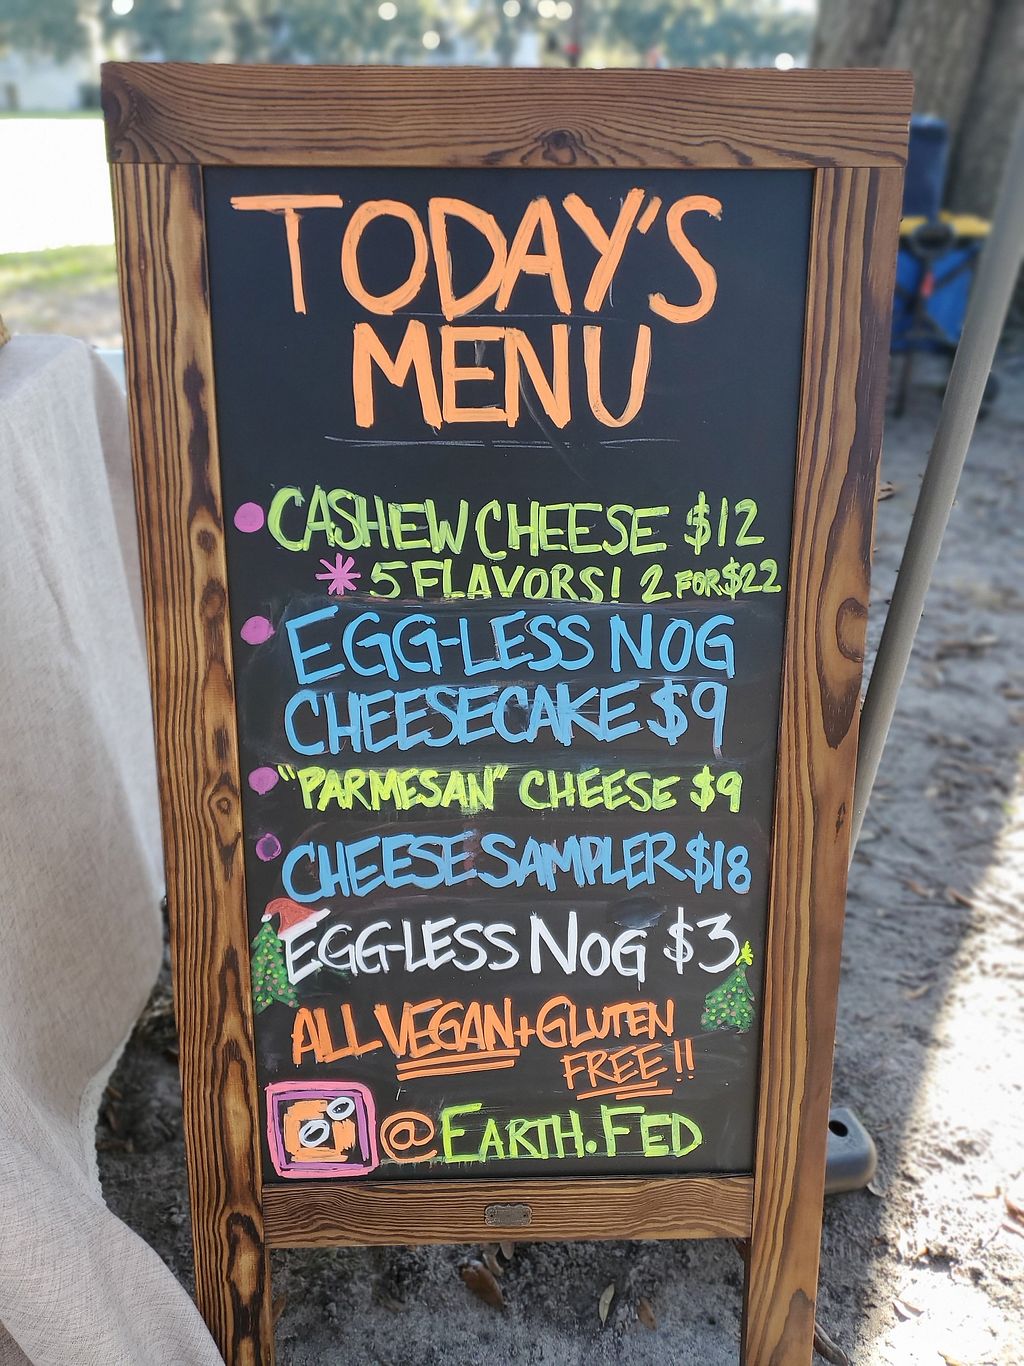 TODAY'S
MENU
CASHEW CHEESE $12
* 5 FLAVORS! 2 FOR $22
EGG-LESS NOG
CHEESECAKE $9
"PARMESAN" CHEESE $9
CHEESE SAMPLER $18
EGG-LESS NOG $3
ALL VEGAN + GLUTEN
FREE!!
@EARTH.FED